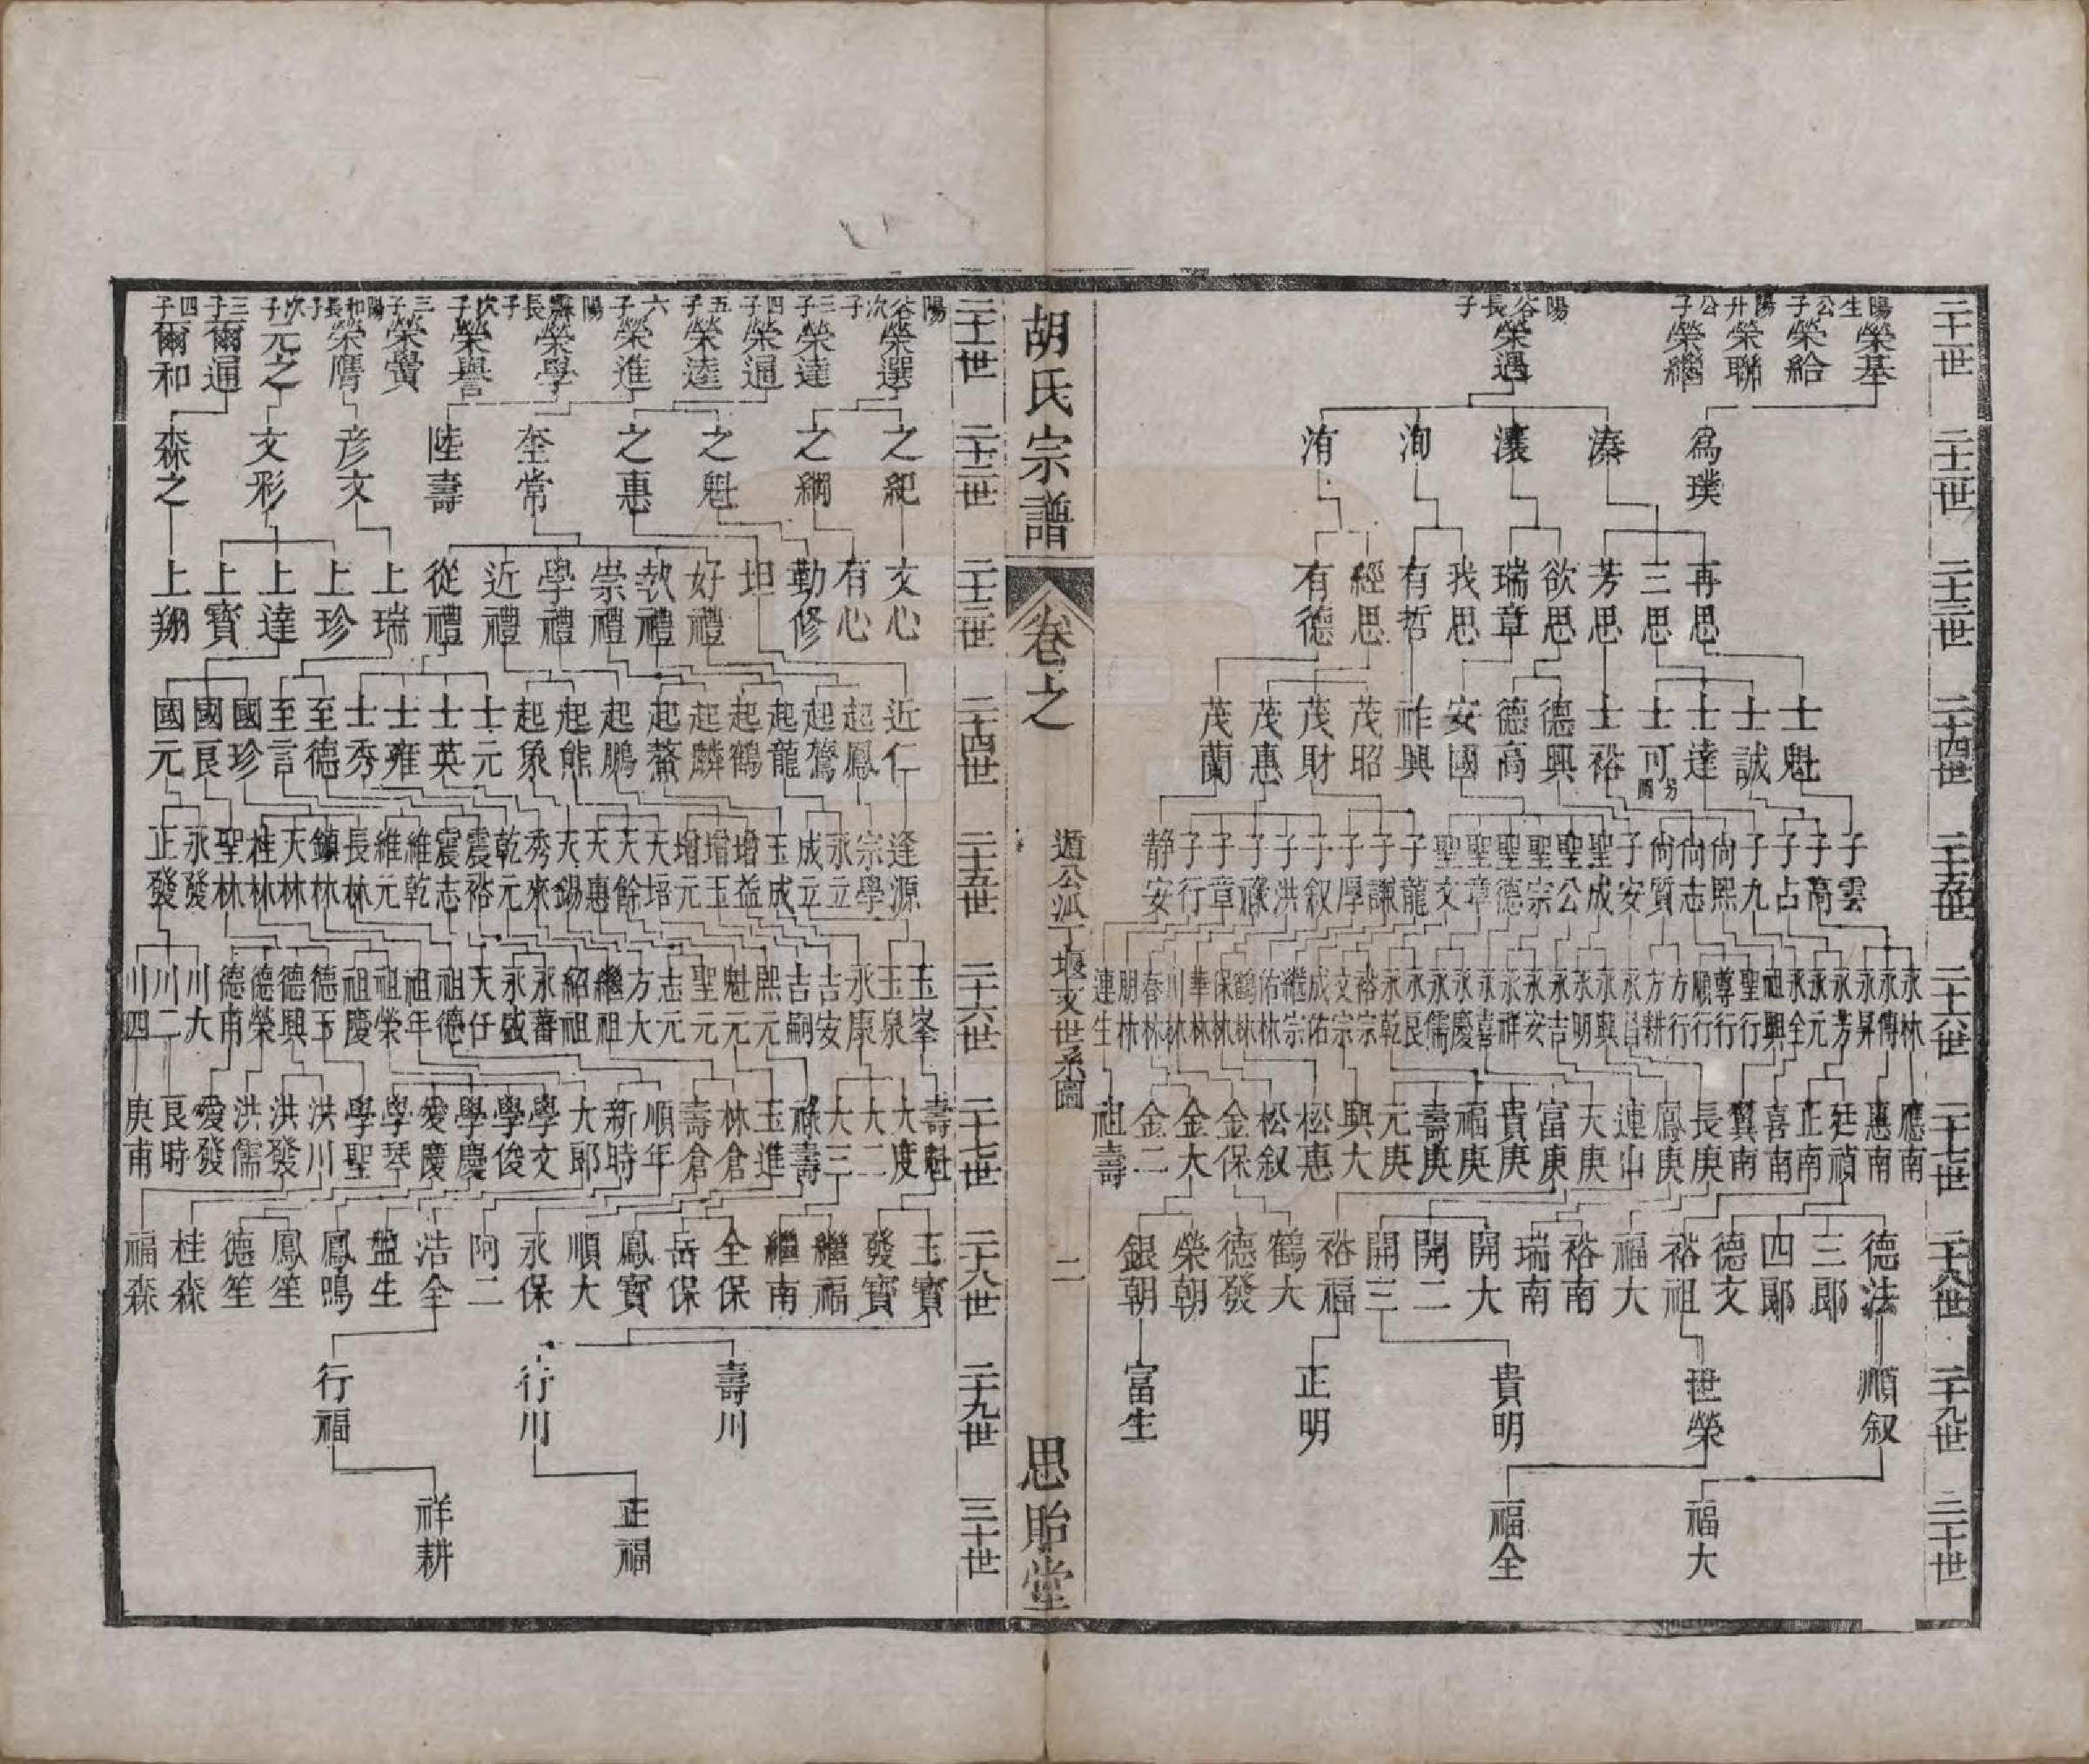 二十一世
陽生公子 榮基 榮給
陽升公子 榮聯 榮繼
陽谷長子 榮遇
二十二世
為璞 溱 瀼 洵 洧
二十三世
再思 三思 芳思 欲思 瑞章 我思 有哲 經思 有德
二十四世
士魁 士誠 士達 士可 士裕 德興 德高 安國 祚興 茂昭 茂財 茂惠 茂蘭
二十五世
子雲 子高 子占 子九 尙熙 尙志 尙質 子安 聖成 聖公 聖宗 聖德 聖章 聖文 子龍 子謙 子厚 子叙 子洪 子祿 子章 子行 静安
二十六世
永林 永傳 永昇 永芳 永元 永全 祖興 聖行 尊行 順行 方行 方耕 永昌 永興 永明 永吉 永安 永祥 永喜 永慶 永儒 永良 永乾 裕宗 文宗 成佑 繼宗 佑林 鶴林 保林 華林 川林 春林 朋林 連生
二十七世
應南 惠南 廷禎 正南 喜南 翼南 長庚 鳳庚 連山 天庚 富庚 貴庚 福庚 壽庚 元庚 興大 松惠 松叙 金保 金大 金二 祖壽
二十八世
德法 三郎 四郎 德文 裕祖 福大 裕南 瑞南 開大 開二 開三 裕福 鶴大 德發 榮朝 銀朝
二十九世
順叙 世榮 貴明 正明 富生
三十世
福大 福全
胡氏宗譜 卷之 遁公派丁堰文世系圖 二 思貽堂
二十一世
陽谷次子 榮選
三子 榮達
四子 榮逼
五子 榮逵
六子 榮進
陽霖長子 榮學
次子 榮譽
三子 榮黌
陽和長子 榮膺
次子 元之
三子 爾逼
四子 爾和
二十二世
之紀 之綱 之魁 之惠 奎常 陸壽 彦文 文彩 森之
二十三世
文心 有心 勤修 坦 好禮 執禮 崇禮 學禮 近禮 從禮 上瑞 上珍 上達 上寶 上翔
二十四世
近仁 起鳳 起鶩 起龍 起鶴 起麟 起鰲 起鵬 起熊 起象 士元 士英 士雍 士秀 至德 至言 國珍 國良 國元
二十五世
逢源 宗學 永立 成立 玉成 增益 增玉 增元 天培 天餘 天惠 天錫 秀來 乾元 震裕 震志 維乾 維元 長林 鎮林 天林 桂林 聖林 永發 正發
二十六世
玉峯 玉泉 永康 吉安 吉嗣 熙元 魁元 聖元 志元 方大 繼祖 紹祖 永蕃 永盛 天任 祖德 祖年 祖榮 祖慶 德玉 德興 德榮 德甫 川大 川二 川四
二十七世
壽魁 大度 大二 大三 祿壽 玉進 林倉 壽倉 順年 新時 大郎 學文 學俊 學慶 愛慶 學琴 學聖 洪川 洪發 洪儒 愛發 良時 庚甫
二十八世
玉寶 發寶 繼福 繼南 全保 岳保 鳳寶 順大 永保 阿二 浩全 盤生 鳳鳴 鳳笙 德笙 桂森 福森
二十九世
壽川 行川 行福
三十世
正福 祥耕